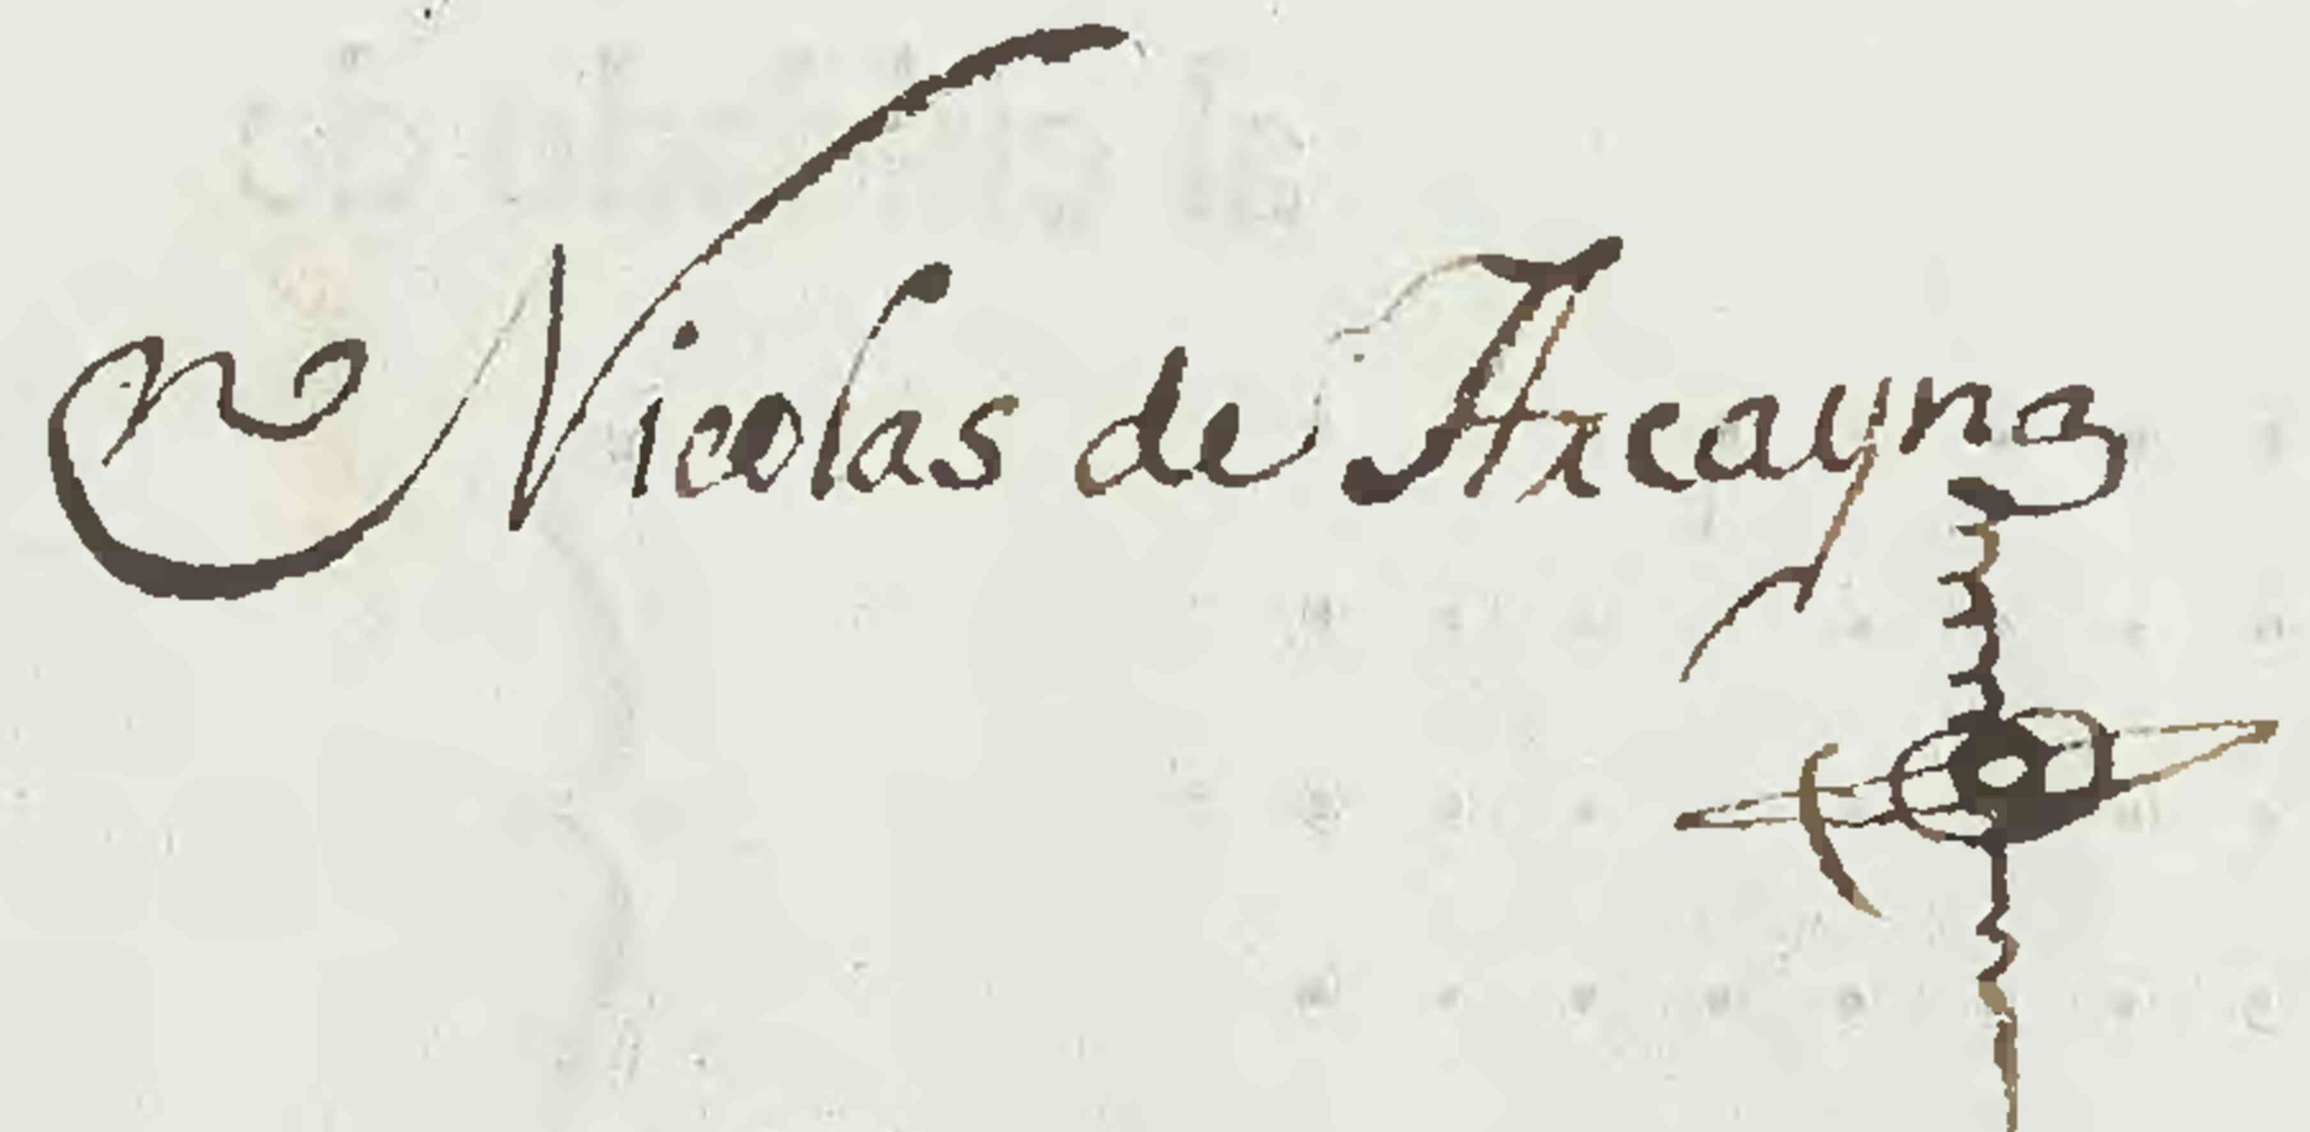 Nicolas de Arcayna